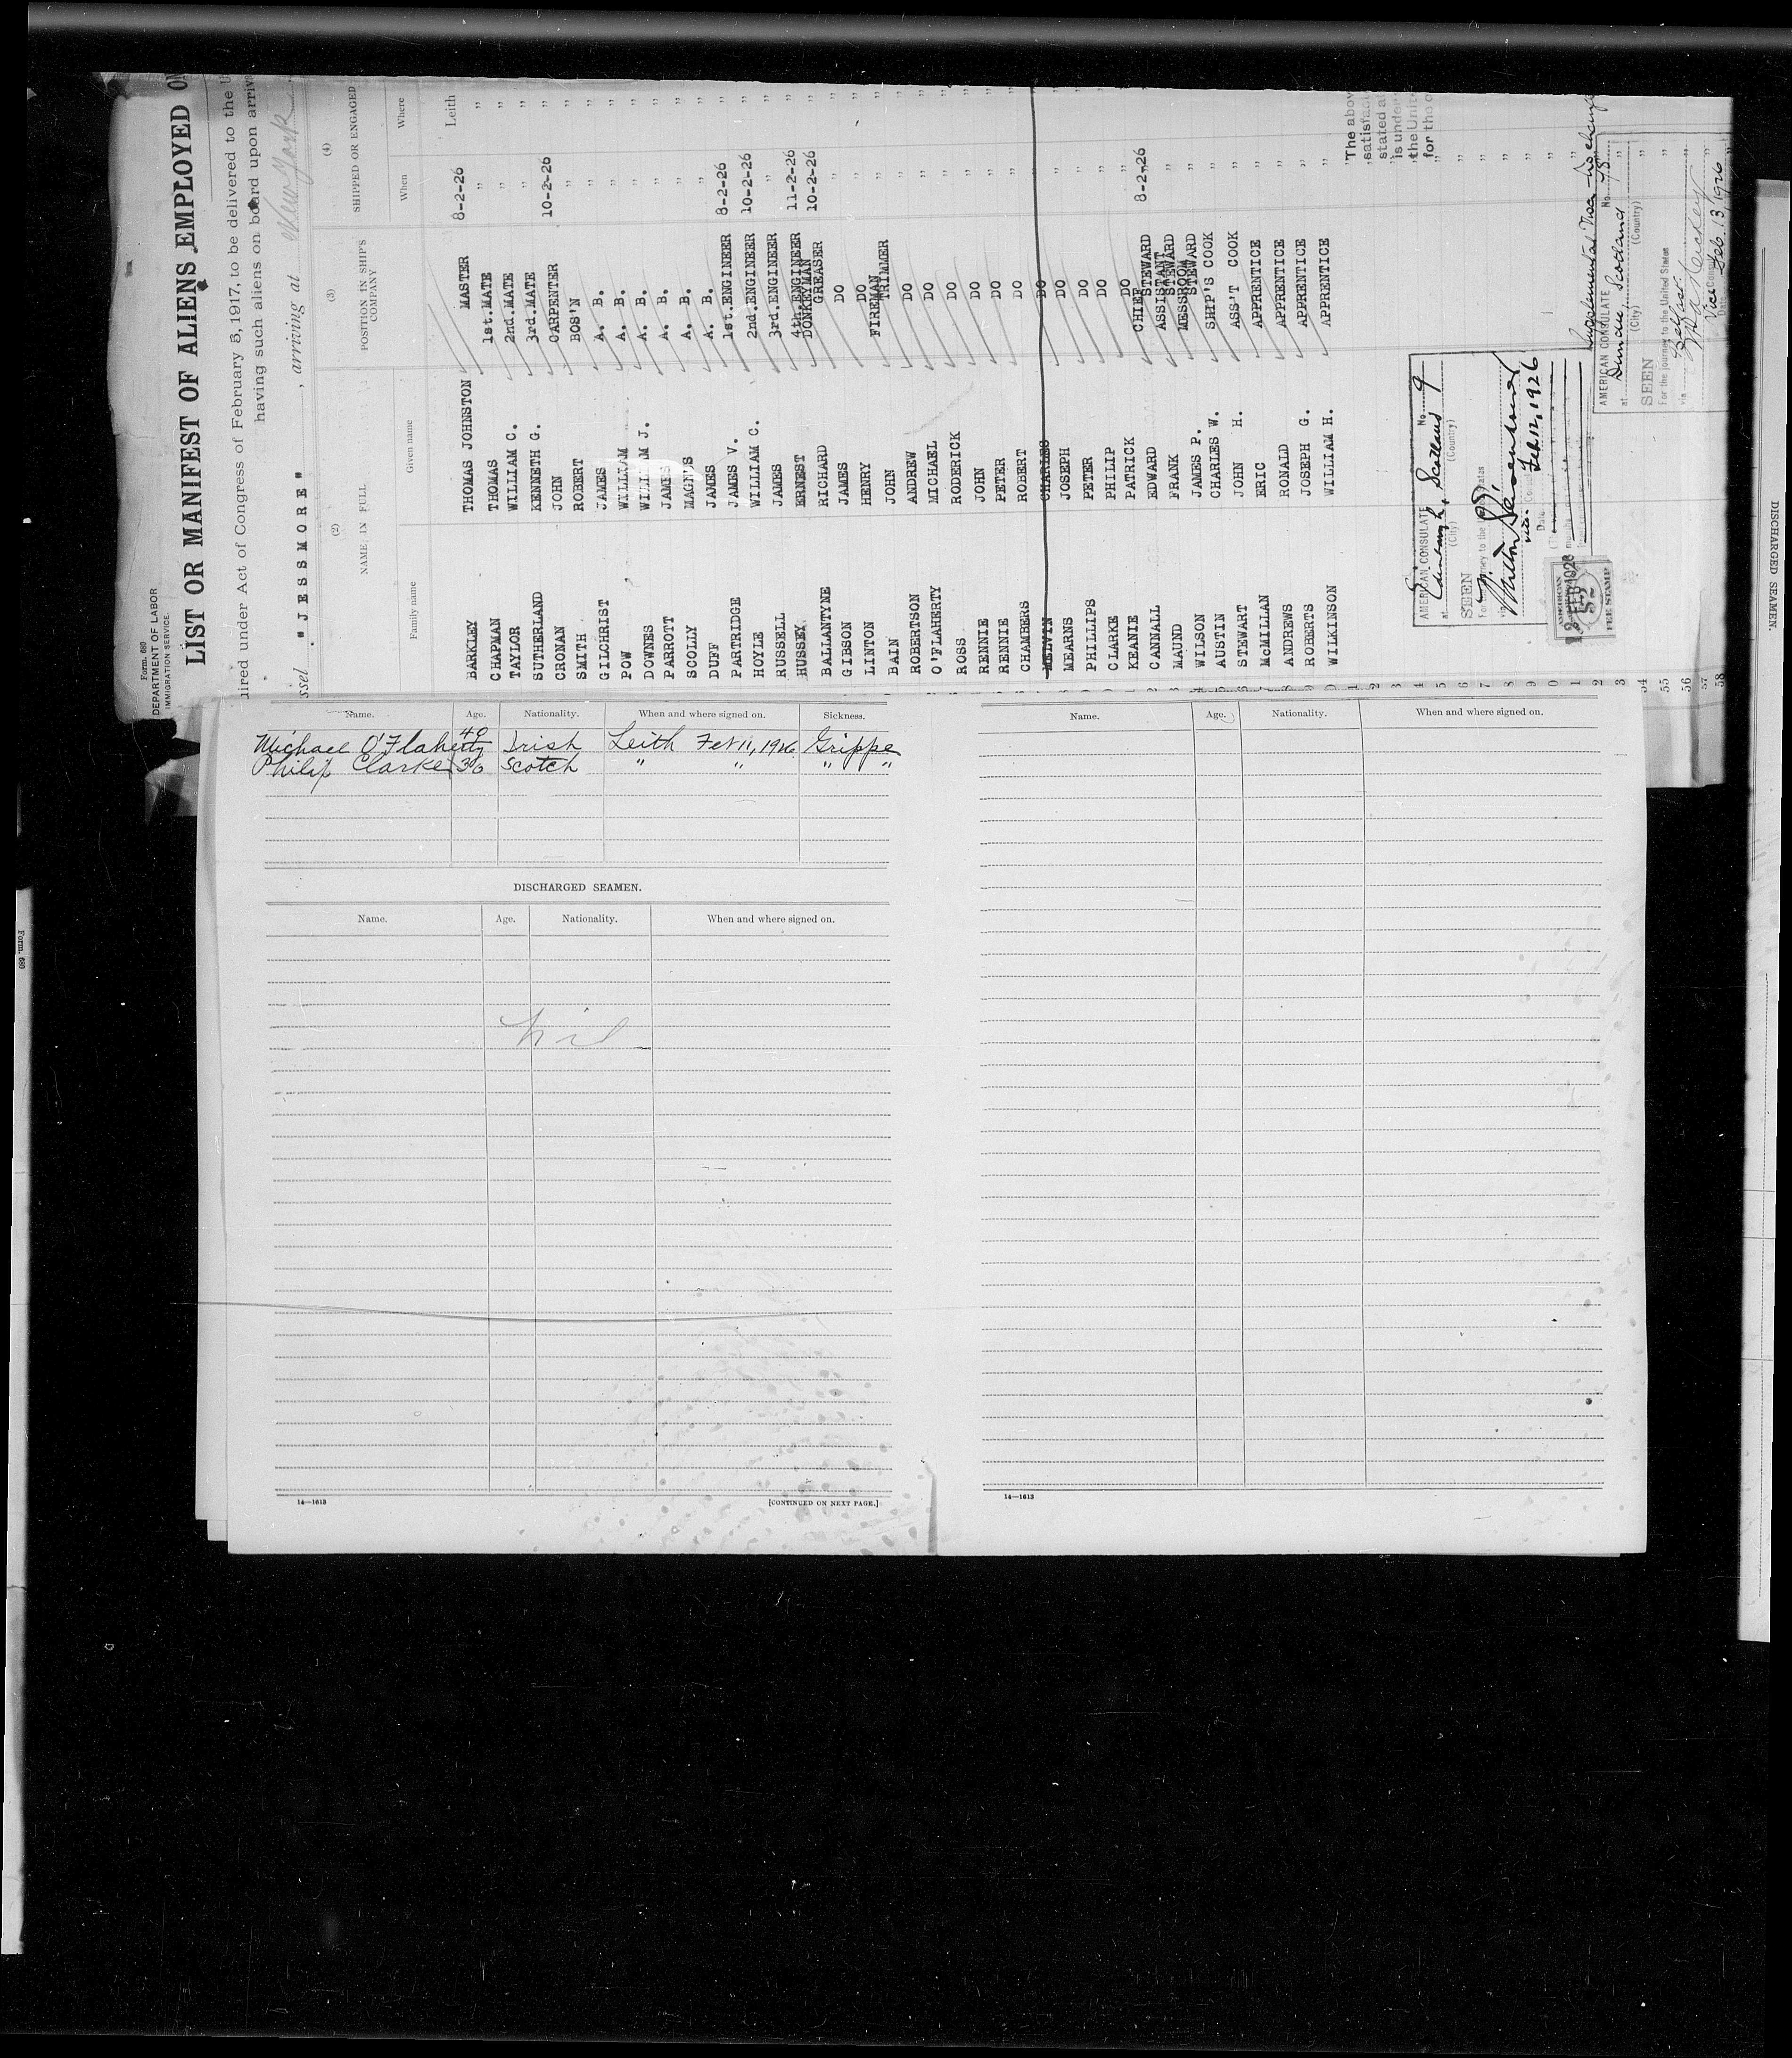 Form. 680
DEPARTMENT OF LABOR
IMMIGRATION SERVICE
LIST OR MANIFEST OF ALIENS EMPLOYED
uired under Act of Congress of February 5, 1917, to be delivered to the
having such aliens on board upon
ssel "JESSMORE" , arriving at New York
(2) (3) (4)
NAME IN FULL POSITION IN SHIP'S COMPANY SHIPPED OR ENGAGED
Family name Given name When Where
BARKLEY THOMAS JOHNSTON MASTER 8-2-26 Leith
CHAPMAN THOMAS 1st.MATE " "
TAYLOR WILLIAM C. 2nd.MATE " "
SUTHERLAND KENNETH G. 3rd.MATE " "
CRONAN JOHN CARPENTER 10-2-26 "
SMITH ROBERT BOS'N " "
GILCHRIST JAMES A. B. " "
POW WILLIAM A. B. " "
DOWNES WILLIAM J. A. B. " "
PARROTT JAMES A. B. " "
SCOLLY MAGNUS A. B. " "
DUFF JAMES A. B. " "
PARTRIDGE JAMES V. 1st.ENGINEER 8-2-26 "
HOYLE WILLIAM C. 2nd.ENGINEER 10-2-26 "
RUSSELL JAMES 3rd.ENGINEER " "
HUSSEY ERNEST 4th.ENGINEER 11-2-26 "
BALLANTYNE RICHARD DONKEYMAN GREASER 10-2-26 "
GIBSON JAMES DO " "
LINTON HENRY DO " "
BAIN JOHN FIREMAN TRIMMER " "
ROBERTSON ANDREW DO " "
O'FLAHERTY MICHAEL DO " "
ROSS RODERICK DO " "
RENNIE JOHN DO " "
RENNIE PETER DO " "
CHAMBERS ROBERT DO " "
MELVIN CHARLES DO
MEARNS JOSEPH DO " "
PHILLIPS PETER DO " "
CLARKE PHILIP DO " "
KEANIE PATRICK DO " "
CANNALL EDWARD CHIEF STEWARD 8-2-26 "
MAUND FRANK ASSISTANT STEWARD " "
WILSON JAMES P. MESSROOM STEWARD " "
AUSTIN CHARLES W. SHIP'S COOK " "
STEWART JOHN H. ASS'T COOK " "
McMILLAN ERIC APPRENTICE " "
ANDREWS RONALD APPRENTICE " "
ROBERTS JOSEPH G. APPRENTICE " "
WILKINSON WILLIAM H. APPRENTICE " "
"The above
satisfac
stated at
is under
the Unit
for the
AMERICAN CONSULATE No. 9
at Edinburgh, Scotland
(City) (Country)
SEEN
For the journey to the United States
via
Date Feb. 12, 1926
AMERICAN
FEE STAMP
Supplemental Visa - No charge
AMERICAN CONSULATE No.
at Dundee, Scotland
(City) (Country)
SEEN
For the journey to the United States
via Belfast
Vice Consul
Date Feb. 13, 1926
Name. Age. Nationality. When and where signed on. Sickness.
Michael O'Flaherty 40 Irish Leith Feb 11, 1926 Grippe
Philip Clarke 36 Scotch " " " "
DISCHARGED SEAMEN.
Name. Age. Nationality. When and where signed on.
nil
14—1613 [CONTINUED ON NEXT PAGE.]
Name. Age. Nationality. When and where signed on.
14—1613
DISCHARGED SEAMEN.
Form. 680